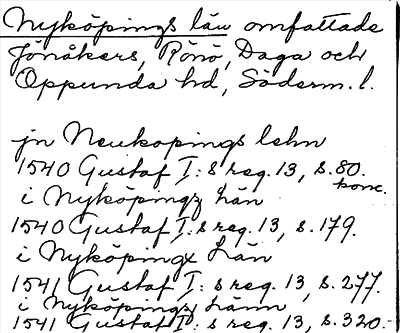 Nyköpings län omfattade
Jönåkers, Rönö, Daga och
Oppunda hd, Söderm. l.
jn Neukopings lehn
1540 Gustaf I: s reg. 13, s. 80.
konc.
i Nyköpingz hän
1540 Gustaf I: s reg. 13, s. 179.
i Nyköpingx Län
1541 Gustaf I: s reg. 13, s. 277.
i Nyköpingz länn
1541 Gustaf I: s reg. 13, s. 320.-